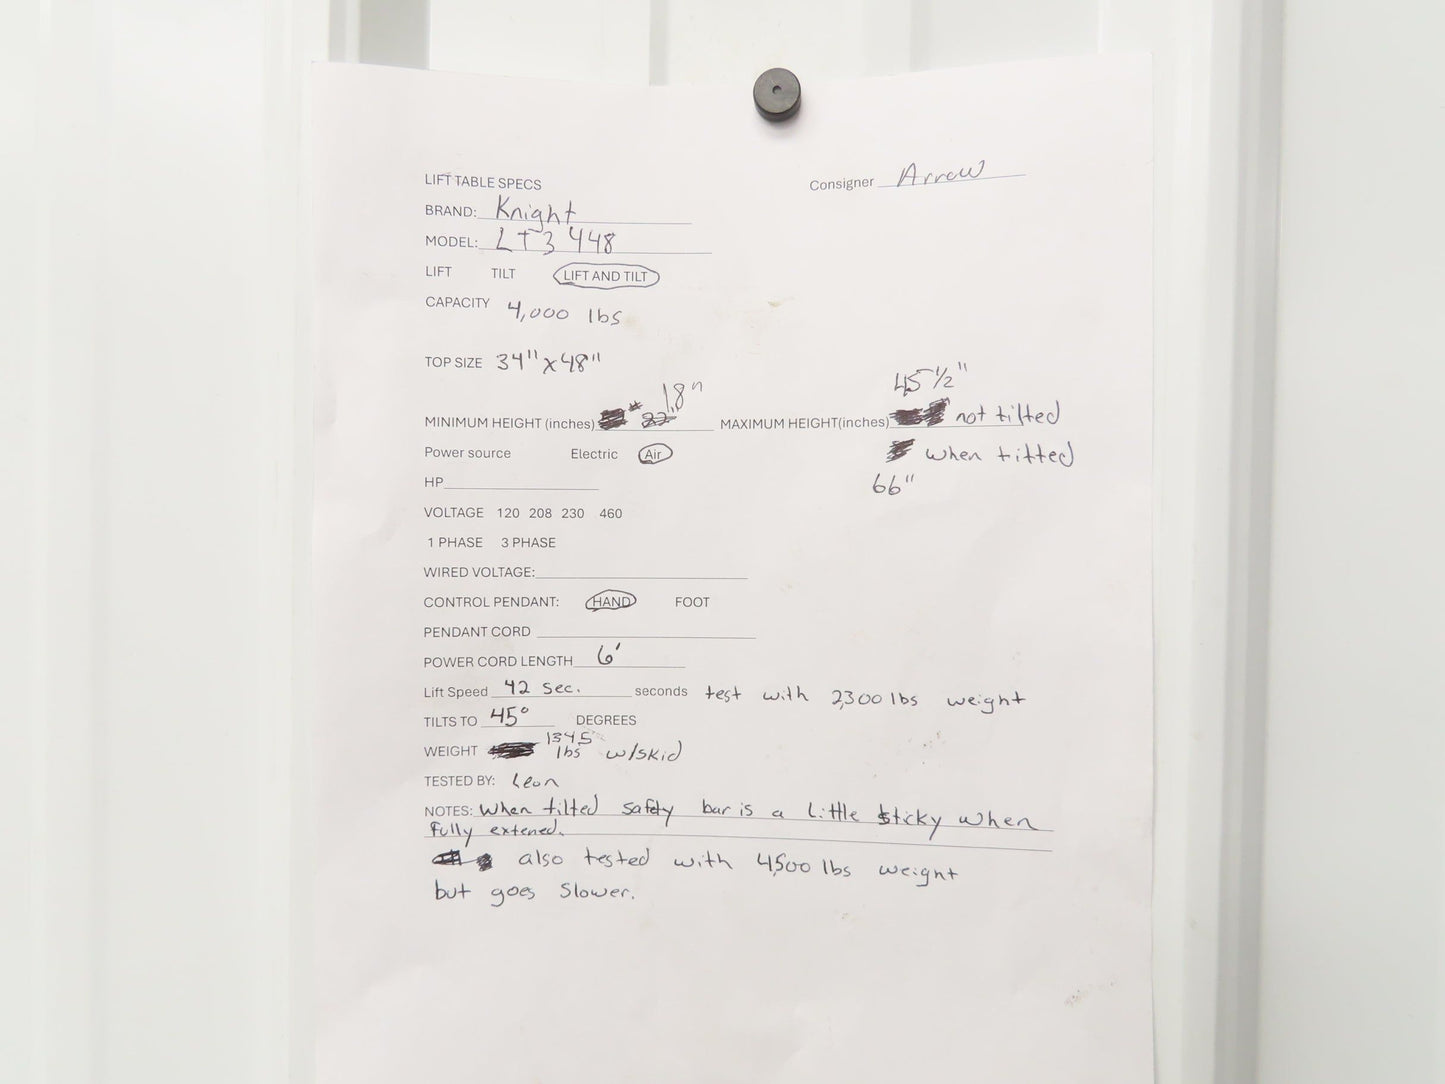 LIFT TABLE SPECS
Consigner Arrow
BRAND: Knight
MODEL: LT3 448
LIFT TILT LIFT AND TILT
CAPACITY 4,000 lbs
TOP SIZE 34" x 48"
18" 45 1/2"
MINIMUM HEIGHT (inches) MAXIMUM HEIGHT(inches) not tilted
Power source Electric Air when tilted
66"
HP
VOLTAGE 120 208 230 460
1 PHASE 3 PHASE
WIRED VOLTAGE:
CONTROL PENDANT: HAND FOOT
PENDANT CORD
POWER CORD LENGTH 6'
Lift Speed 42 sec. seconds test with 2,300 lbs weight
TILTS TO 45° DEGREES
1345
WEIGHT lbs w/skid
TESTED BY: Leon
NOTES: When tilted safety bar is a little sticky when
fully extened.
also tested with 4,500 lbs weight
but goes slower.